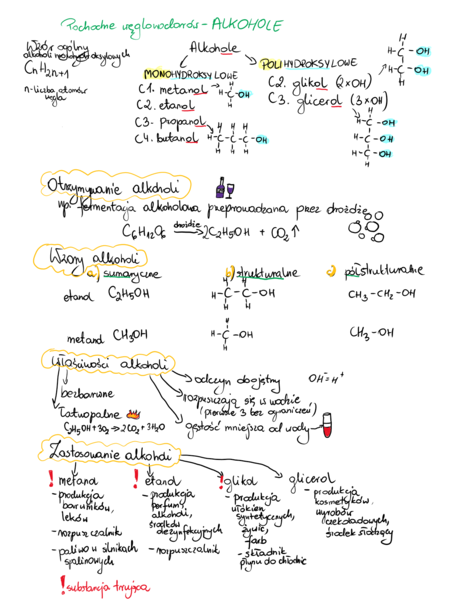 Pochodne węglowodorów - ALKOHOLE
Wzór ogólny
alkoholi monohydroksylowych
CnH2n+1
n-liczba atomów
węgla
Alkohole
MONOHYDROKSYLOWE
C1. metanol
C2. etanol
C3. propanol
C4. butanol
POLIHYDROKSYLOWE
C2. glikol (2×OH)
C3. glicerol (3×OH)
Otrzymywanie alkoholi
np. fermentacja alkoholowa przeprowadzana przez drożdże
C6H12O6 drożdże→ 2C2H5OH + CO2↑
Wzory alkoholi
a) sumaryczne b) strukturalne c) półstrukturalne
etanol C2H5OH
CH3-CH2-OH
metanol CH3OH
CH3-OH
Właściwości alkoholi
bezbarwne
łatwopalne
C2H5OH+3O2→2CO2+3H2O
odczyn obojętny OH⁻=H⁺
rozpuszczają się w wodzie
(pierwsze 3 bez ograniczeń)
gęstość mniejsza od wody
Zastosowanie alkoholi
! metanol
- produkcja
barwników,
leków
- rozpuszczalnik
- paliwo w silnikach
spalinowych
! etanol
- produkcja
perfum,
alkoholi,
środków
dezynfekcyjnych
- rozpuszczalnik
! glikol
- produkcja
włókien
syntetycznych,
żywic,
farb
- składnik
płynu do chłodnic
glicerol
- produkcja
kosmetyków,
wyrobów
czekoladowych,
środek słodzący
! substancja trująca